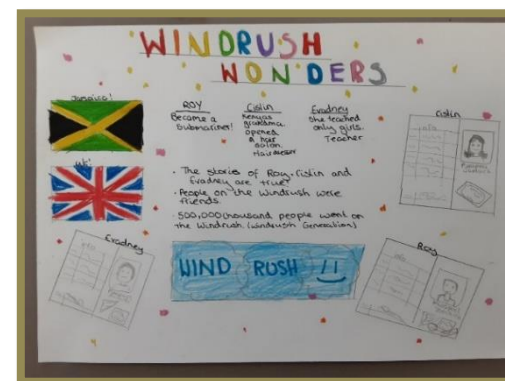 WINDRUSH
WONDERS
Jamaica!
ROY
Become a
submariner!
Cislin
Kenyas
grandma
opened
a hair
salon.
Hairdresser
Evadney
She teached
only girls.
Teacher
Cislin
UK!
· The stories of Roy, Cislin and
Evadney are true!
· People on the Windrush were
friends.
· 500,000 thousand people went on
the Windrush (Windrush Generation)
Evadney
WIND RUSH
Roy